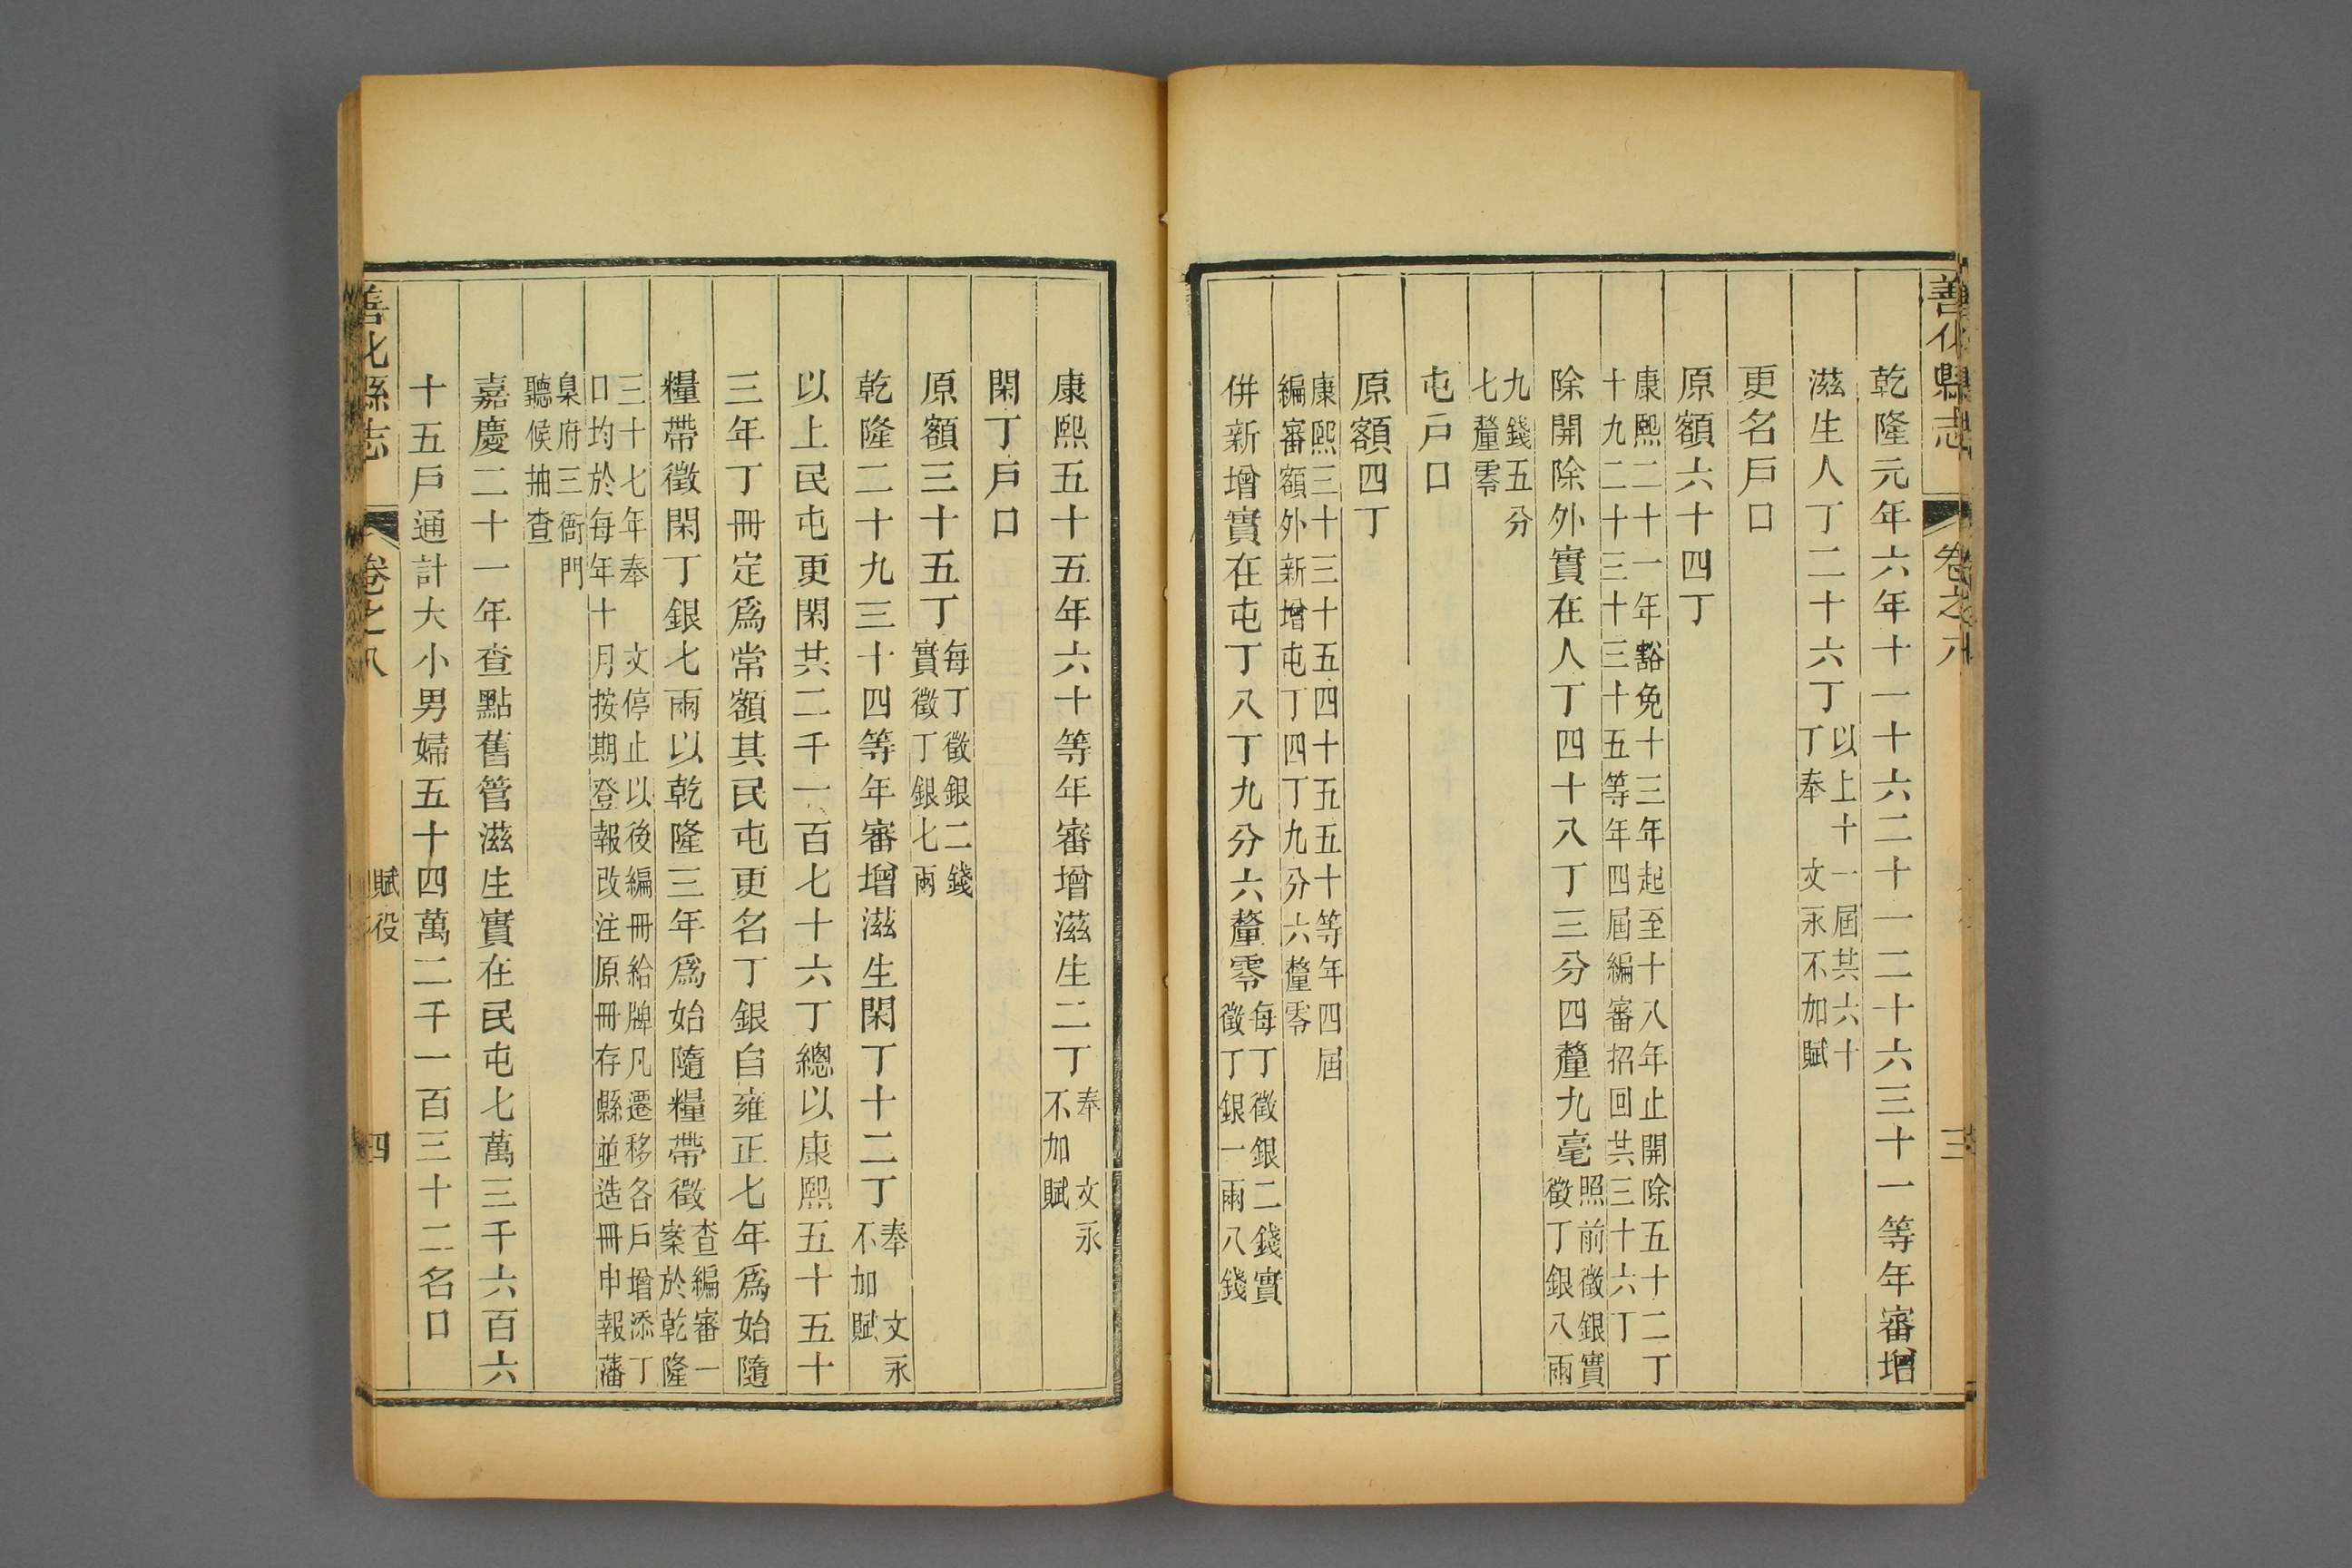 善化縣志 卷之八 三
乾隆元年六年十一十六二十一二十六三十一等年審增
滋生人丁二十六丁 以上十一屆共六十
丁奉 文永不加賦
更名戶口
原額六十四丁
康熙二十一年豁免十三年起至十八年止開除五十二丁
十九二十三十三十五等年四屆編審招回共三十六丁
除開除外實在人丁四十八丁三分四釐九毫 照前徵銀實
徵丁銀八兩
九錢五分
七釐零
屯戶口
原額四丁
康熙三十三十五四十五五十等年四屆
編審額外新增屯丁四丁九分六釐零
併新增實在屯丁八丁九分六釐零 每丁徵銀二錢實
徵丁銀一兩八錢
康熙五十五年六十等年審增滋生二丁 奉 文永
不加賦
閑丁戶口
原額三十五丁 每丁徵銀二錢
實徵丁銀七兩
乾隆二十九三十四等年審增滋生閑丁十二丁 奉 文永
不加賦
以上民屯更閑共二千一百七十六丁總以康熙五十五十
三年丁冊定爲常額其民屯更名丁銀自雍正七年爲始隨
糧帶徵閑丁銀七兩以乾隆三年爲始隨糧帶徵 查編審一
案於乾隆
三十七年奉 文停止以後編冊給牌凡遷移各戶增添丁
口均於每年十月按期登報改注原冊存縣並造冊申報藩
臬府三衙門
聽候抽查
嘉慶二十一年查點舊管滋生實在民屯七萬三千六百六
十五戶通計大小男婦五十四萬二千一百三十二名口
善化縣志 卷之八 賦役 四